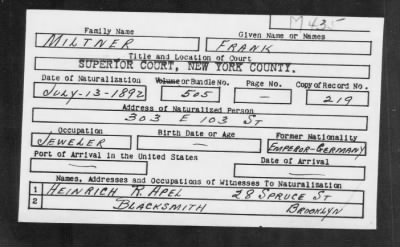 M 435
Family Name Given Name or Names
MILTNER FRANK
Title and Location of Court
SUPERIOR COURT, NEW YORK COUNTY.
Date of Naturalization Volume or Bundle No. Page No. Copy of Record No.
JULY-13-1892 505 — 219
Address of Naturalized Person
303 E 103 ST
Occupation Birth Date or Age Former Nationality
JEWELER — EMPEROR-GERMANY
Port of Arrival in the United States Date of Arrival
— —
Names, Addresses and Occupations of Witnesses To Naturalization
1 HEINRICH R. APEL 28 SPRUCE ST
2 BLACKSMITH BROOKLYN